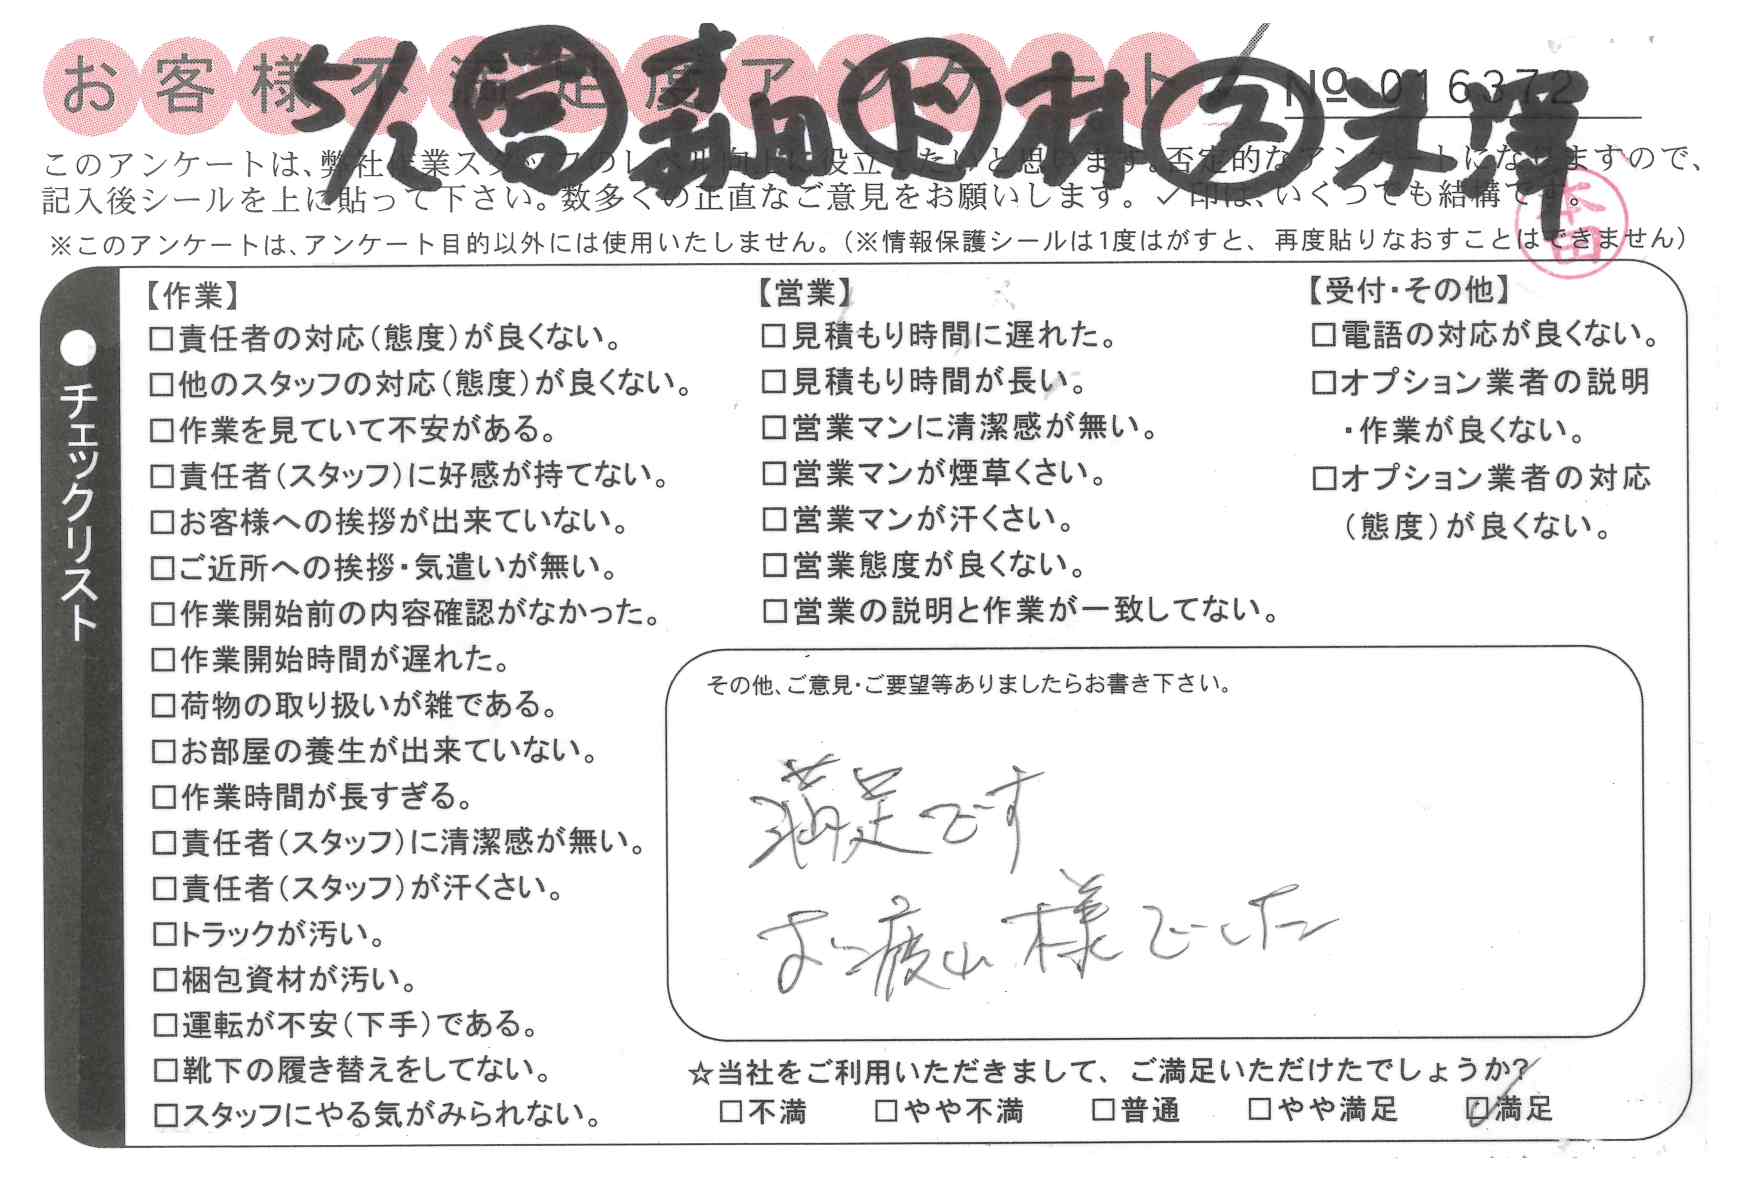 お客様不満足度アンケート
№ 016372
5/2
米澤
このアンケートは、弊社作業スタッフのレベル向上に役立てたいと思います。否定的なアンケートになりますので、
記入後シールを上に貼って下さい。数多くの正直なご意見をお願いします。✓印は、いくつでも結構です。
本田
※このアンケートは、アンケート目的以外には使用いたしません。（※情報保護シールは1度はがすと、再度貼りなおすことはできません）
●チェックリスト
【作業】
□責任者の対応（態度）が良くない。
□他のスタッフの対応（態度）が良くない。
□作業を見ていて不安がある。
□責任者（スタッフ）に好感が持てない。
□お客様への挨拶が出来ていない。
□ご近所への挨拶・気遣いが無い。
□作業開始前の内容確認がなかった。
□作業開始時間が遅れた。
□荷物の取り扱いが雑である。
□お部屋の養生が出来ていない。
□作業時間が長すぎる。
□責任者（スタッフ）に清潔感が無い。
□責任者（スタッフ）が汗くさい。
□トラックが汚い。
□梱包資材が汚い。
□運転が不安（下手）である。
□靴下の履き替えをしてない。
□スタッフにやる気がみられない。
【営業】
□見積もり時間に遅れた。
□見積もり時間が長い。
□営業マンに清潔感が無い。
□営業マンが煙草くさい。
□営業マンが汗くさい。
□営業態度が良くない。
□営業の説明と作業が一致してない。
【受付・その他】
□電話の対応が良くない。
□オプション業者の説明
・作業が良くない。
□オプション業者の対応
（態度）が良くない。
その他、ご意見・ご要望等ありましたらお書き下さい。
満足です
お疲れ様でした
☆当社をご利用いただきまして、ご満足いただけたでしょうか？
□不満 □やや不満 □普通 □やや満足 ☑満足